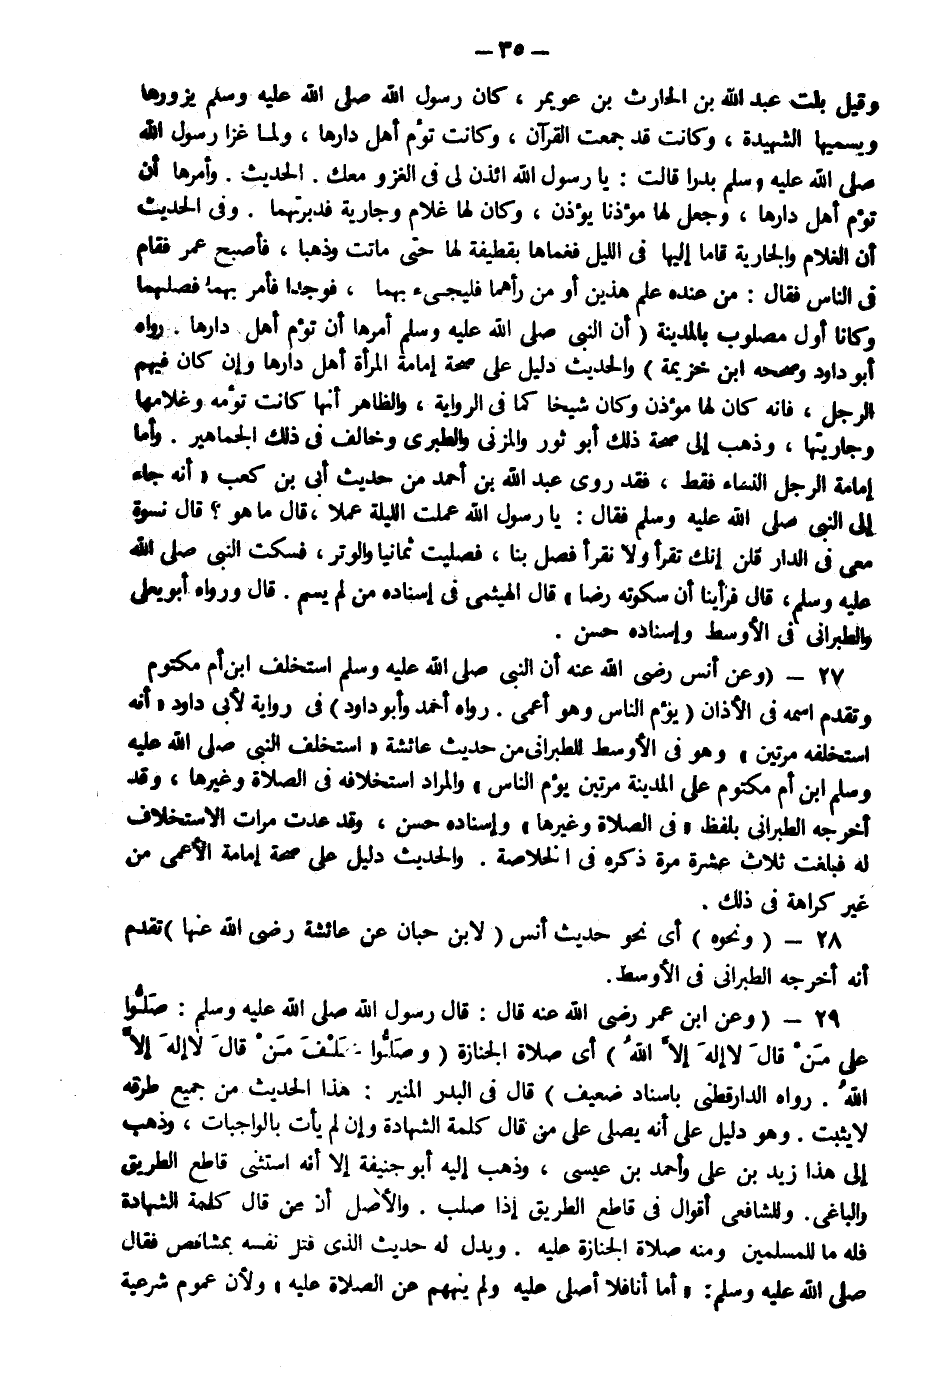 — ٣٥ —
وقيل بنت عبد الله بن الحارث بن عويمر ، كان رسول الله صلى الله عليه وسلم يزورها
ويسميها الشهيدة ، وكانت قد جمعت القرآن ، وكانت تؤم أهل دارها ، ولما غزا رسول الله
صلى الله عليه وسلم بدرا قالت : يا رسول الله ائذن لى فى الغزو معك . الحديث . وأمرها أن
تؤم أهل دارها ، وجعل لها مؤذنا يؤذن ، وكان لها غلام وجارية فدبرتهما . وفى الحديث
أن الغلام والجارية قاما إليها فى الليل فغماها بقطيفة لها حتى ماتت وذهبا ، فأصبح عمر فقام
فى الناس فقال : من عنده علم هذين أو من رأهما فليجىء بهما ، فوجدا فأمر بهما فصلبهما
وكانا أول مصلوب بالمدينة ( أن النبى صلى الله عليه وسلم أمرها أن تؤم أهل دارها . رواه
أبو داود وصححه ابن خزيمة ) والحديث دليل على صحة إمامة المرأة أهل دارها وإن كان فيهم
الرجل ، فانه كان لها مؤذن وكان شيخا كما فى الرواية ، والظاهر أنها كانت تؤمه وغلامها
وجاريتها ، وذهب إلى صحة ذلك أبو ثور والمزنى والطبرى وخالف فى ذلك الجماهير . وأما
إمامة الرجل النساء فقط ، فقد روى عبد الله بن أحمد من حديث أبى بن كعب « أنه جاء
إلى النبى صلى الله عليه وسلم فقال : يا رسول الله عملت الليلة عملا ، قال ما هو ؟ قال نسوة
معى فى الدار قلن إنك تقرأ ولا نقرأ فصل بنا ، فصليت ثمانيا والوتر ، فسكت النبى صلى الله
عليه وسلم، قال فرأينا أن سكوته رضا » قال الهيثمى فى إسناده من لم يسم . قال ورواه أبو يعلى
والطبرانى فى الأوسط وإسناده حسن .
٢٧ — (وعن أنس رضى الله عنه أن النبى صلى الله عليه وسلم استخلف ابن أم مكتوم
وتقدم اسمه فى الأذان ( يؤم الناس وهو أعمى . رواه أحمد وأبو داود ) فى رواية لأبى داود « أنه
استخلفه مرتين » وهو فى الأوسط للطبرانى من حديث عائشة « استخلف النبى صلى الله عليه
وسلم ابن أم مكتوم على المدينة مرتين يؤم الناس » والمراد استخلافه فى الصلاة وغيرها ، وقد
أخرجه الطبرانى بلفظ « فى الصلاة وغيرها » وإسناده حسن ، وقد عدت مرات الاستخلاف
له فبلغت ثلاث عشرة مرة ذكره فى الخلاصة . والحديث دليل على صحة إمامة الأعمى من
غير كراهة فى ذلك .
٢٨ — ( ونحوه ) أى نحو حديث أنس ( لابن حبان عن عائشة رضى الله عنها ) تقدم
أنه أخرجه الطبرانى فى الأوسط.
٢٩ — ( وعن ابن عمر رضى الله عنه قال : قال رسول الله صلى الله عليه وسلم : صَلُّوا
على مَنْ قالَ لا إلهَ إلاَّ اللهُ ) أى صلاة الجنازة ( وصَلُّوا خَلْفَ مَنْ قالَ لا إلهَ إلاَّ
اللهُ . رواه الدارقطنى باسناد ضعيف ) قال فى البدر المنير : هذا الحديث من جميع طرقه
لايثبت . وهو دليل على أنه يصلى على من قال كلمة الشهادة وإن لم يأت بالواجبات ، وذهب
إلى هذا زيد بن على وأحمد بن عيسى ، وذهب إليه أبو حنيفة إلا أنه استثنى قاطع الطريق
والباغى. وللشافعى أقوال فى قاطع الطريق إذا صلب . والأصل أن من قال كلمة الشهادة
فله ما للمسلمين ومنه صلاة الجنازة عليه . ويدل له حديث الذى قتل نفسه بمشاقص فقال
صلى الله عليه وسلم: « أما أنا فلا أصلى عليه ولم ينههم عن الصلاة عليه » ولأن عموم شرعية